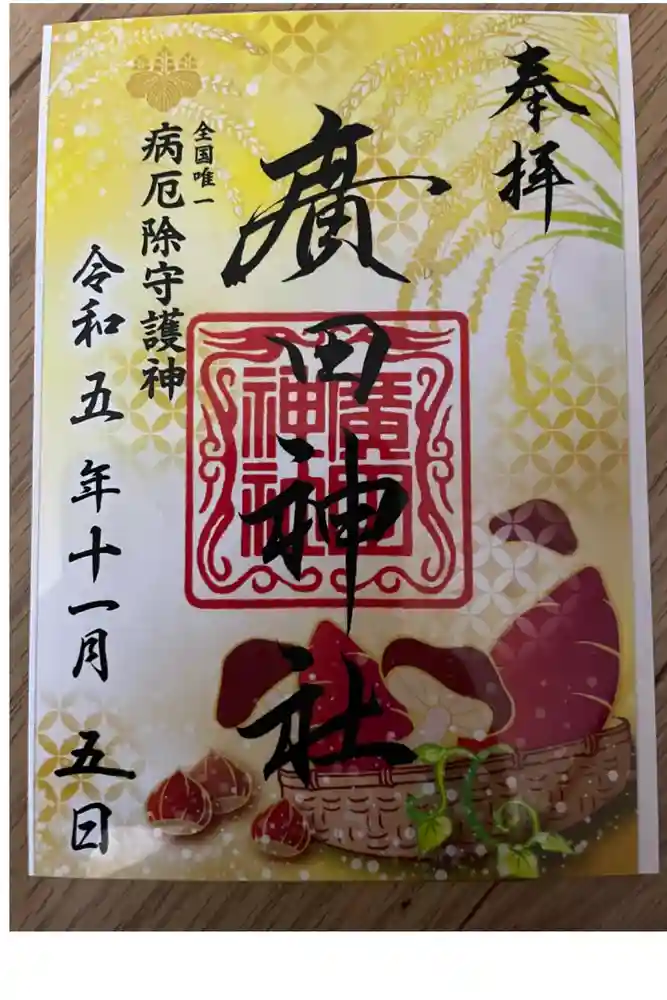 奉拝
廣田神社
廣田
神社
全国唯一
病厄除守護神
令和五年十一月五日